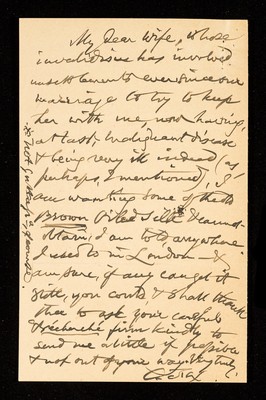 My dear Wife, whose
invalidism has involved
unsettlements ever since our
marriage to try to keep
her with me, now having,
at last, malignant disease
& being very ill indeed (as
perhaps, I mentioned), I
am wanting some of the
Brown Oiled Silk
I am told, anywhere
I used to in London - &
am sure, if any can get it
still, you could, & shall thank
thee to ask your careful
& recherché firm kindly to
send me a little if possible
& not out of your way. Very truly
& not